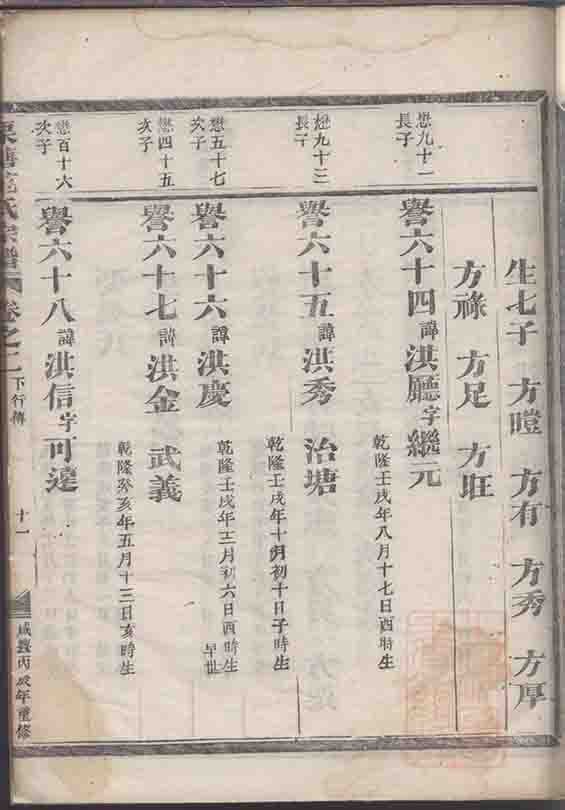 生七子 方暟 方有 方秀 方厚
方祿 方足 方旺
懋九十一
長子
譽六十四諱洪廳字繼元
乾隆壬戌年八月十七日酉時生
懋九十三
長子
譽六十五諱洪秀 治塘
乾隆壬戌年十月初十日子時生
懋五十七
次子
譽六十六諱洪慶
乾隆壬戌年三月初六日酉時生
早世
懋四十五
次子
譽六十七諱洪金 武義
乾隆癸亥年五月十三日亥時生
懋百十六
次子
譽六十八諱洪信字可達
氏宗譜 卷之二 下行傳
十一
咸豐丙辰年重修